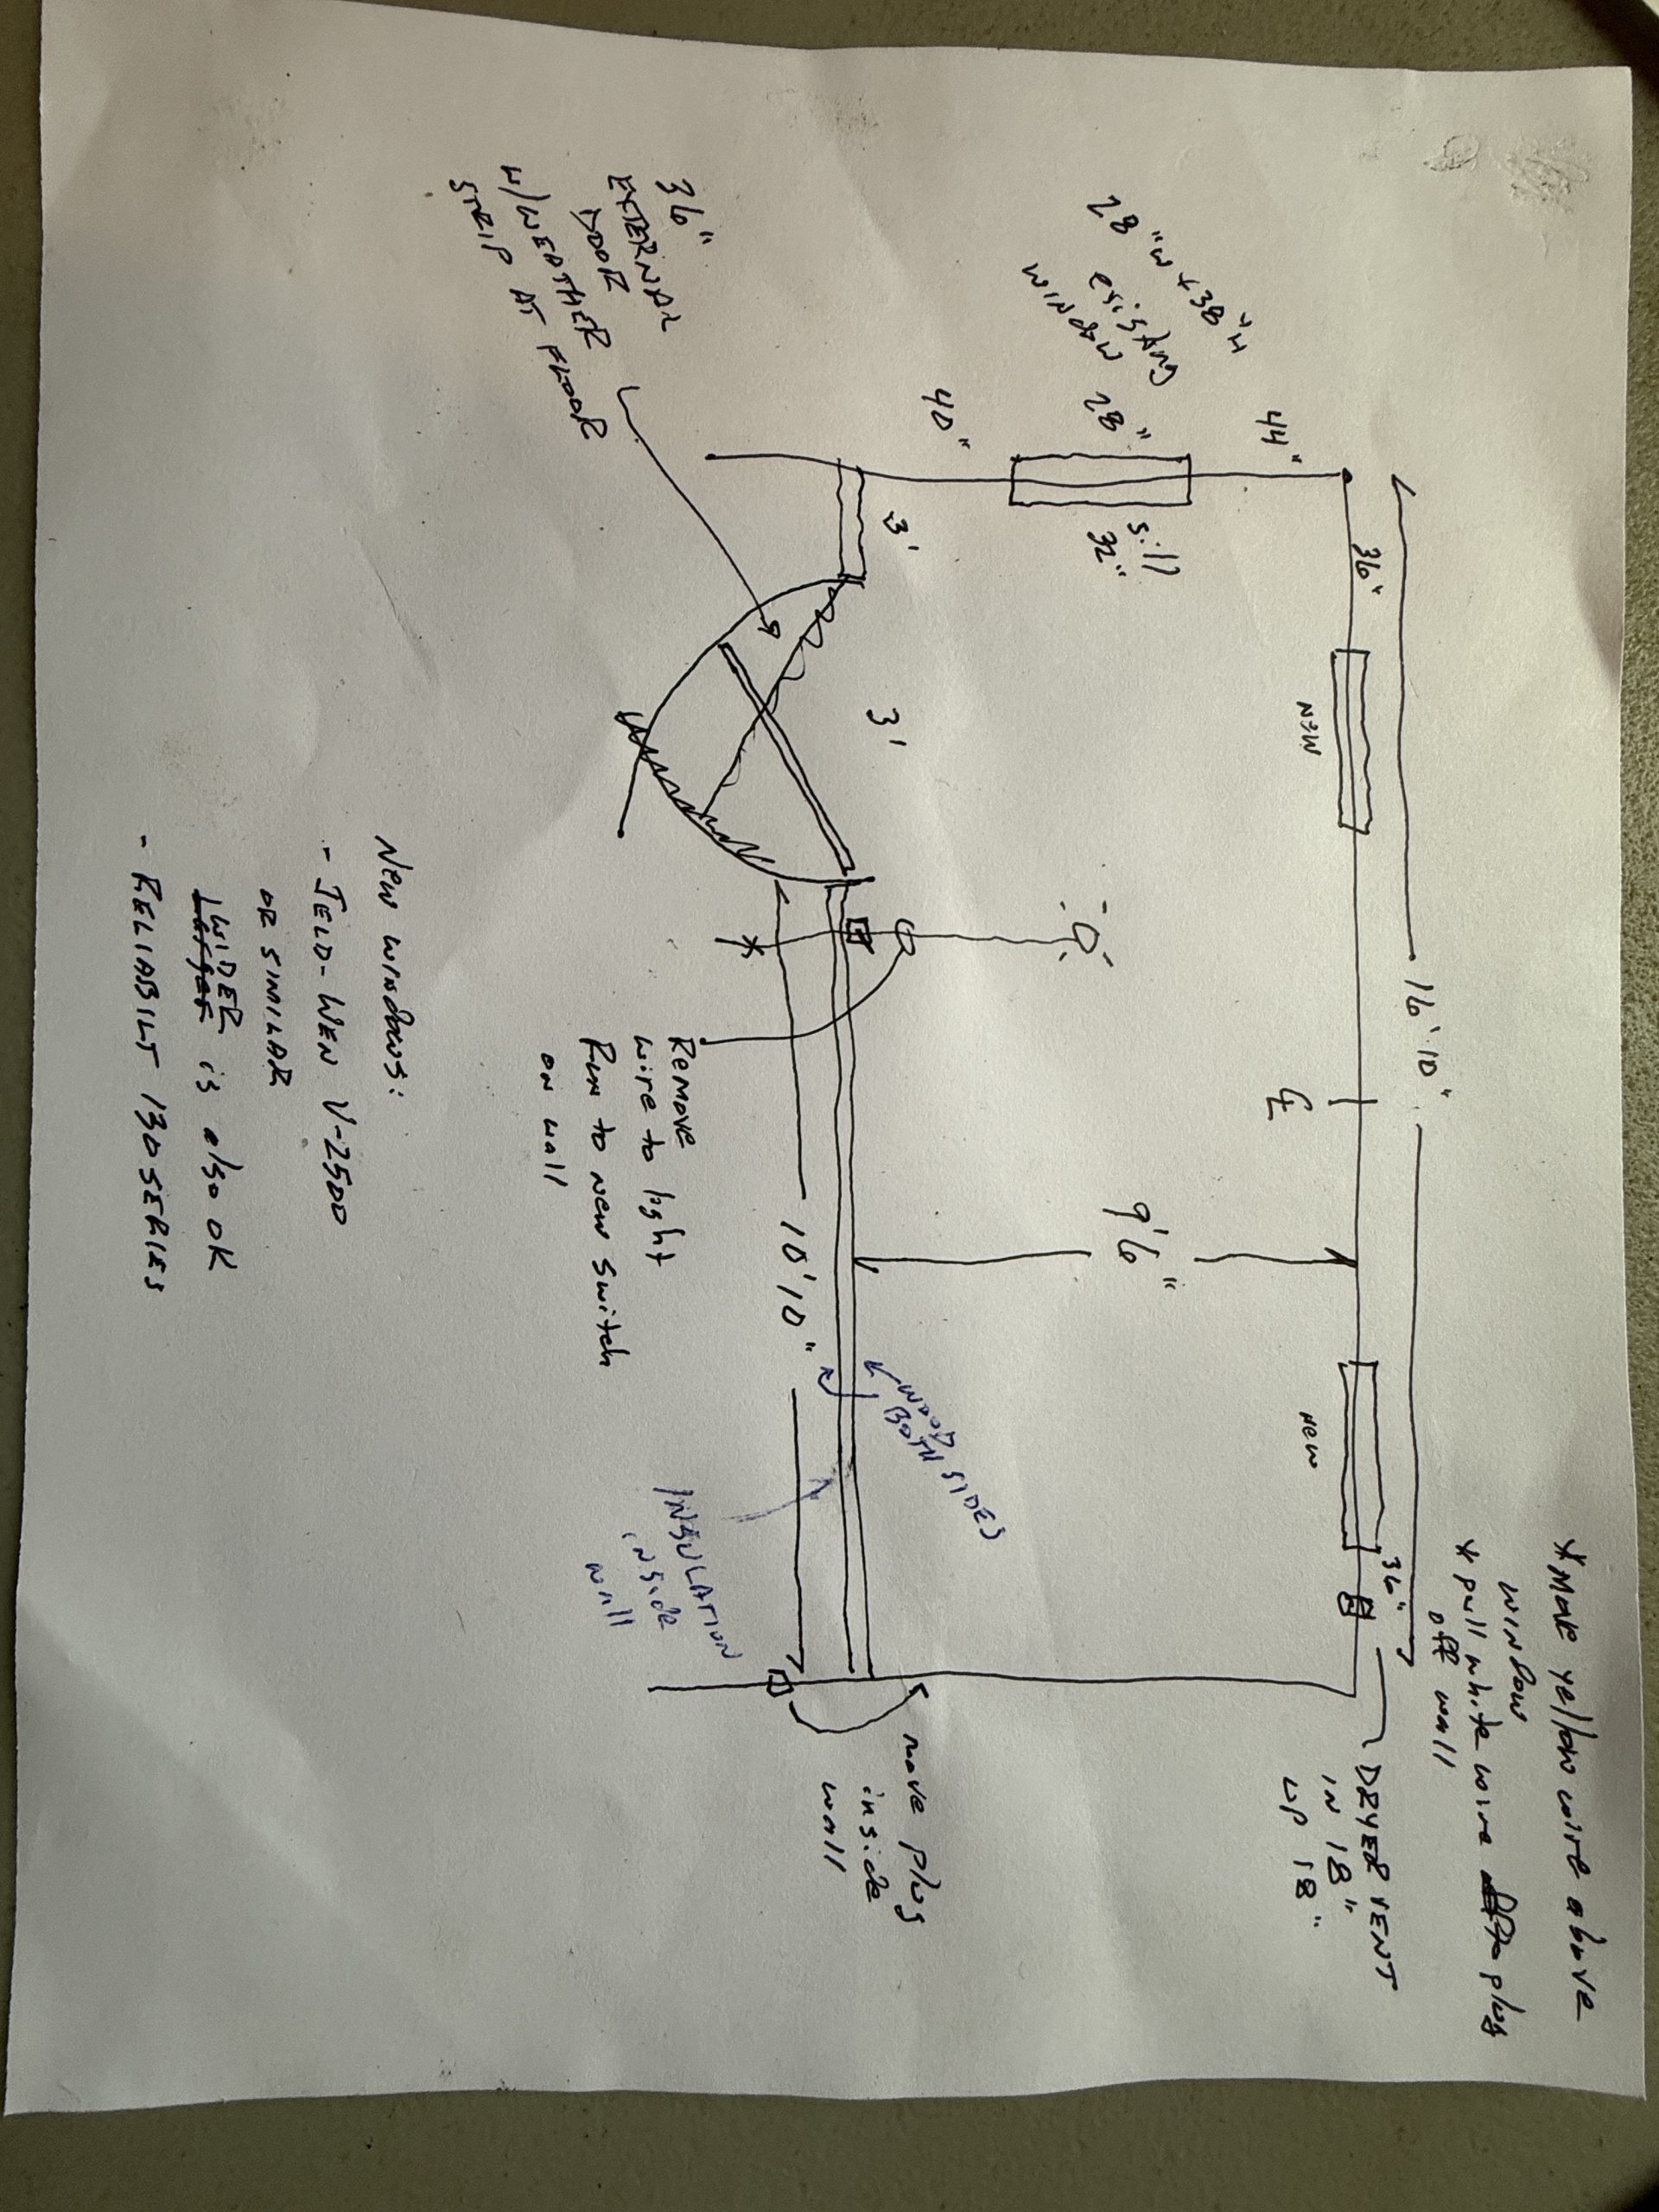 *Move yellow wire above
window
* pull white wire plug
off wall
16' 10"
36"
NEW
CL
NEW
36"
DRYER VENT
IN 18"
UP 18"
28"W x 38"H
existing
WINDOW
44"
28"
40"
sill
32"
9'6"
3'
3'
WOOD
BOTH SIDES
move plug
inside
wall
10' 10"
36"
EXTERNAL
DOOR
W/WEATHER
STRIP AT FLOOR
Remove
wire to light
Run to new switch
on wall
INSULATION
inside
wall
New windows:
- JELD-WEN V-2500
OR SIMILAR
WIDER
Larger is also OK
- RELIABILT 130 SERIES